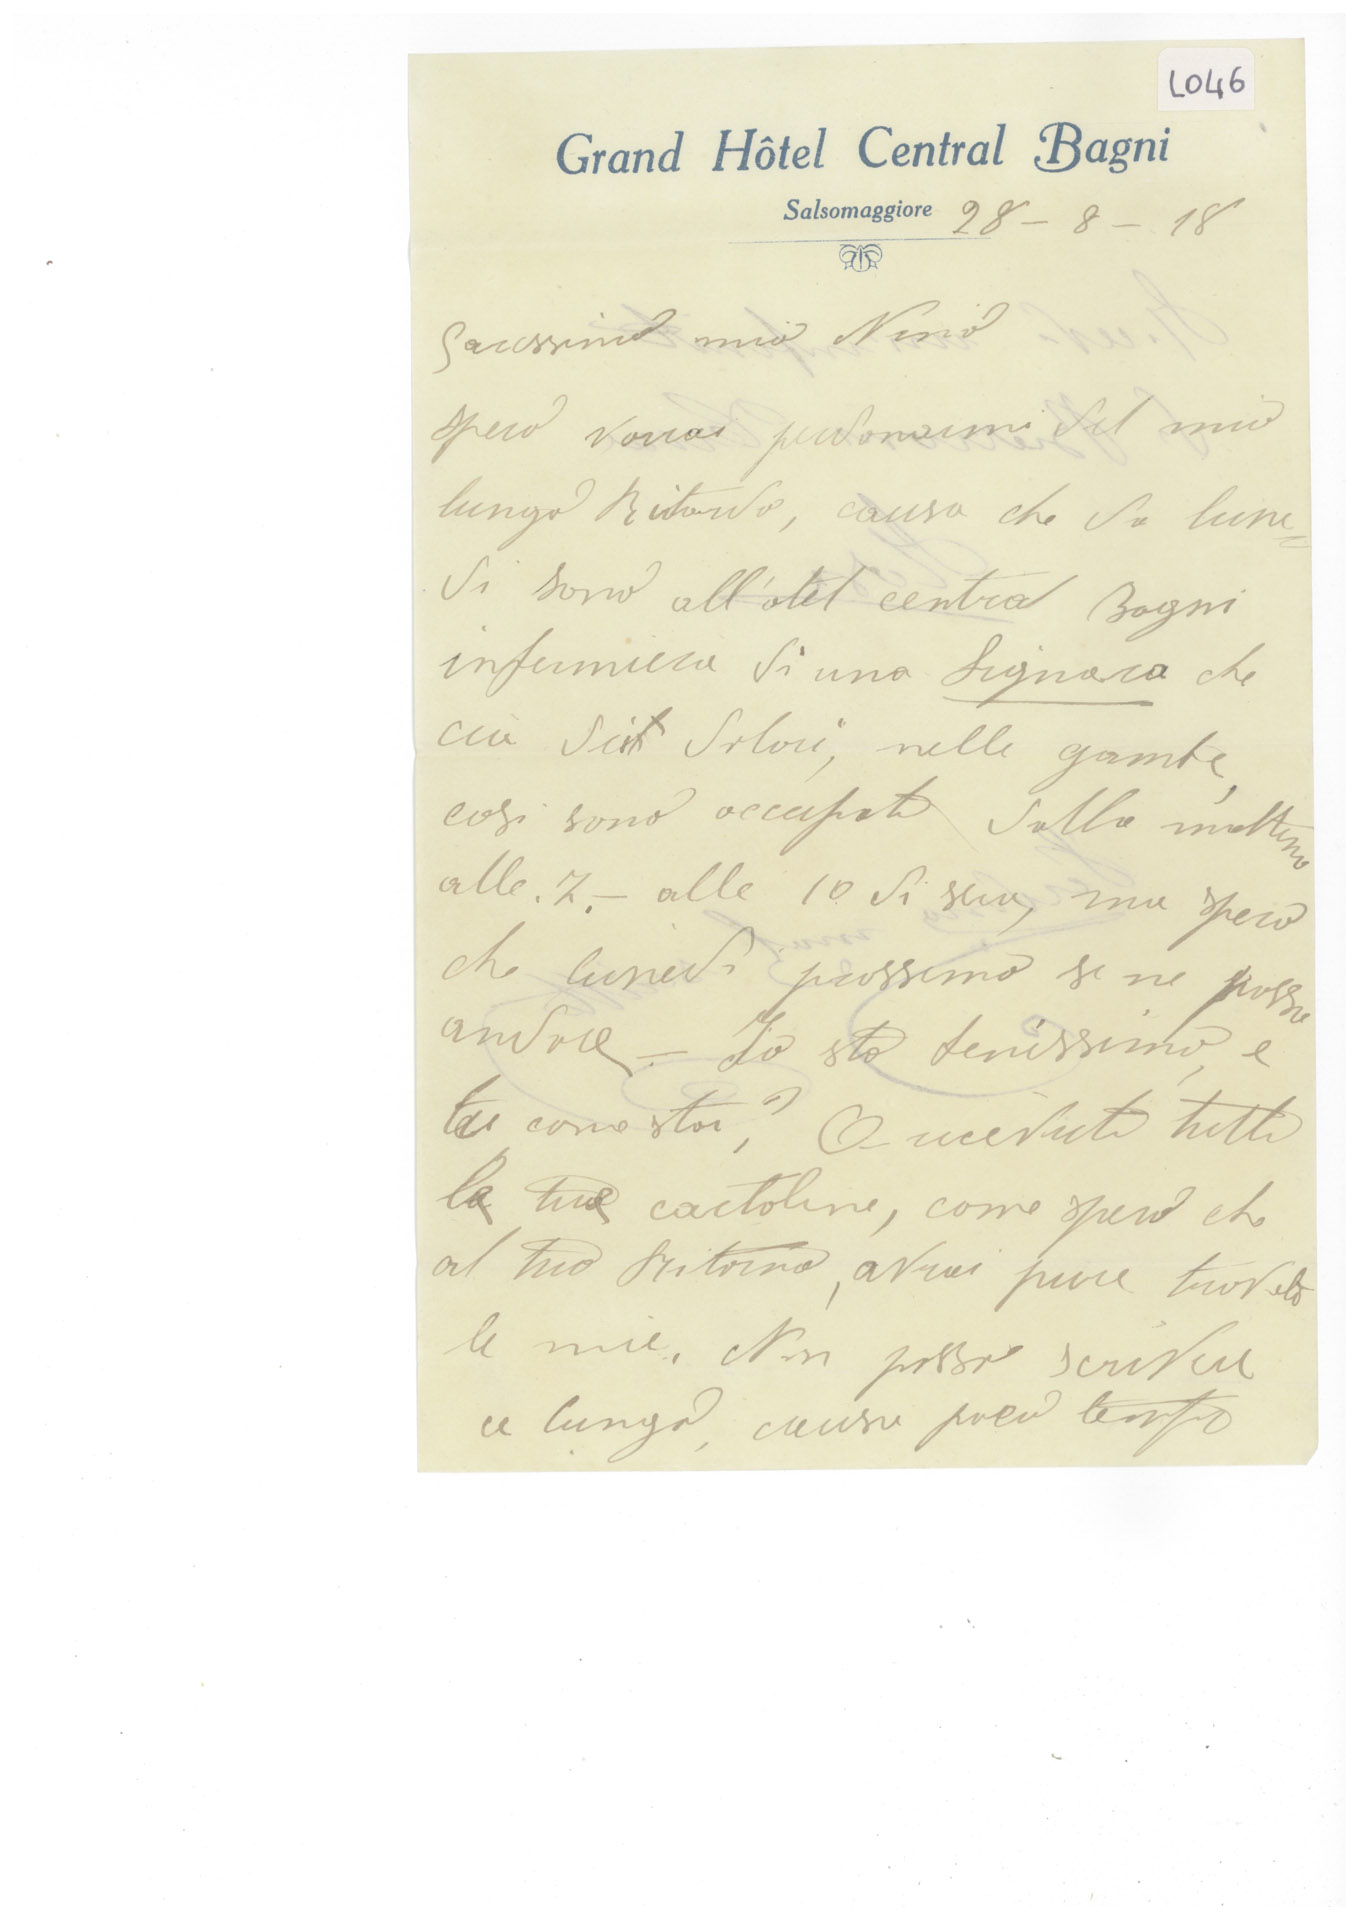 L046
Grand Hôtel Central Bagni
Salsomaggiore 28 - 8 - 18
Carissimo mio Nino
spero vorrai perdonarmi del mio
lungo Ritardo, causa che da lune=
di sono all'otel central Bagni
infermiera di una Signora che
dolori, nelle gambe,
cosi sono occupata dalla mattina
alle. 7. - alle 10 di sera, ma spero
che lunedi prossimo se ne possa
andare - Io sto benissimo, e
tu come stai? O ricevute tutte
le tue cartoline, come spero che
al tuo Ritorno, avrai pure trovato
le mie. Non posso scrivere
a lungo, causa poco tempo